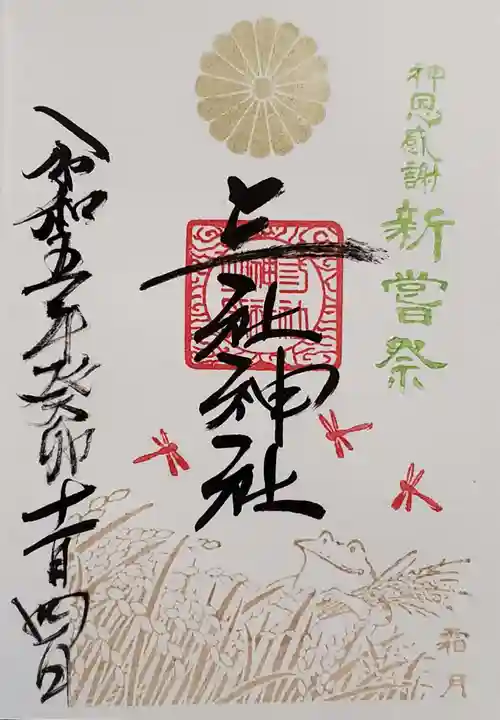 神恩感謝 新嘗祭
社神社
令和五年癸卯十一月四日
霜月